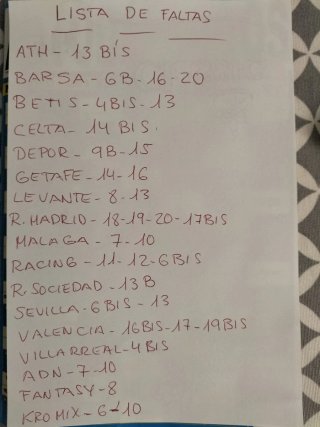 LISTA DE FALTAS
ATH - 13 BÍS
BARSA - 6B - 16 - 20
BETIS - 4BIS - 13
CELTA - 14 BIS.
DEPOR - 9B - 15
GETAFE - 14 - 16
LEVANTE - 8 - 13
R. MADRID - 18 - 19 - 20 - 17BIS
MALAGA - 7 - 10
RACING - 11 - 12 - 6BIS
R. SOCIEDAD - 13 B
SEVILLA - 6BIS - 13
VALENCIA - 16BIS - 17 - 19BIS
VILLARREAL - 4BIS
ADN - 7 - 10
FANTASY - 8
KROMIX - 6 - 10